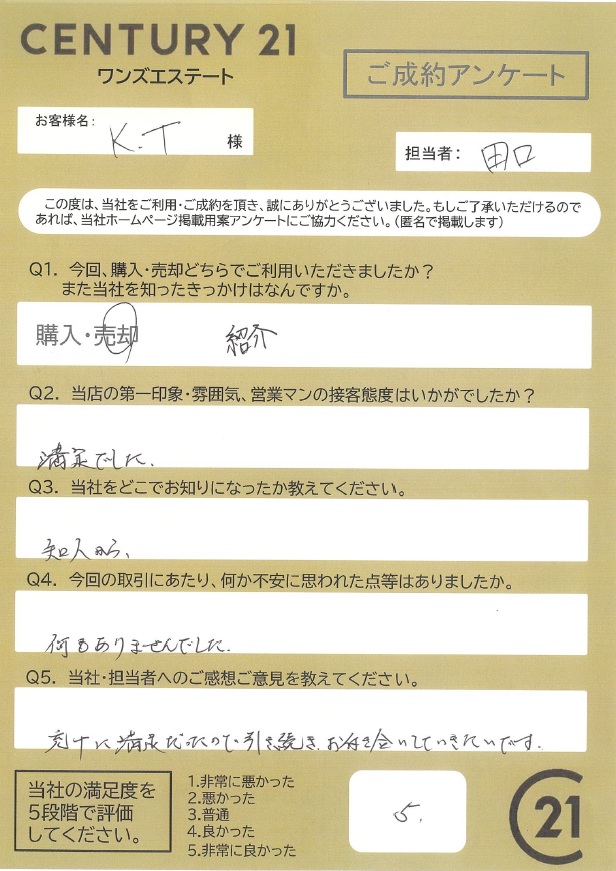 CENTURY 21
ワンズエステート
ご成約アンケート
お客様名：
K.T 様
担当者： 田口
この度は、当社をご利用・ご成約を頂き、誠にありがとうございました。もしご了承いただけるので
あれば、当社ホームページ掲載用案アンケートにご協力ください。（匿名で掲載します）
Q1. 今回、購入・売却どちらでご利用いただきましたか？
また当社を知ったきっかけはなんですか。
購入・売却 紹介
Q2. 当店の第一印象・雰囲気、営業マンの接客態度はいかがでしたか？
満足でした.
Q3. 当社をどこでお知りになったか教えてください。
知人から、
Q4. 今回の取引にあたり、何か不安に思われた点等はありましたか。
何もありませんでした.
Q5. 当社・担当者へのご感想ご意見を教えてください。
充十に満足だったので引き続き、お付き合いしていきたいです.
当社の満足度を
5段階で評価
してください。
1.非常に悪かった
2.悪かった
3.普通
4.良かった
5.非常に良かった
5.
21